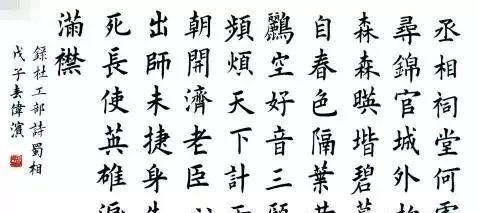 丞相祠堂何
尋錦官城外
森森暎堦碧
自春色隔葉
鸝空好音三
頻煩天下計
朝開濟老臣
出師未捷身
死長使英雄
滿襟
錄杜工部詩蜀相
戊子春偉濱